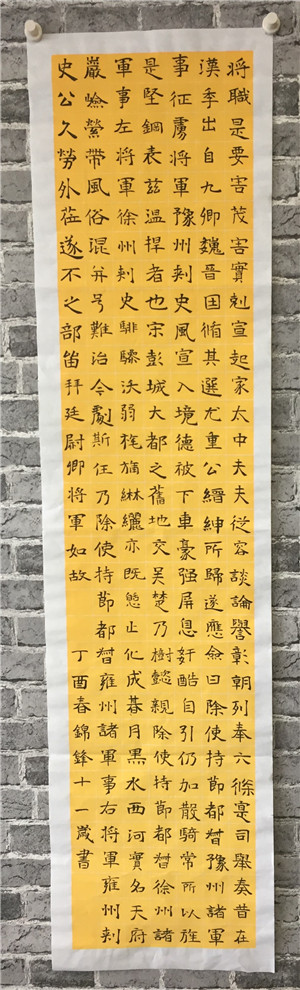 將職是要害茂害實剋宣起家太中夫夫從容談論譽彰朝列奉六條寔司舉奏昔在
漢季出自九卿魏晉因循其選尤重公縉紳所歸遂應僉曰除使持節都督豫州諸軍
事征虜將軍豫州刺史風宣入境德被下車豪强屏息奸酷自引仍加散騎常所以旌
是堅鋼表兹溫捍者也宗彭城大都之舊地交吳楚乃樹懿親除使持節都督徐州諸
軍事左將軍徐州刺史騑驂沃弱旄旃綝纚亦既憇止化成朞月黑水西河實名天府
巖嶮縈帶風俗混并号難治今劇斯任乃除使持節都督雍州諸軍事右將軍雍州刺
史公久勞外莅遂不之部拜廷尉卿將軍如故
丁酉春錦鋒十一歲書